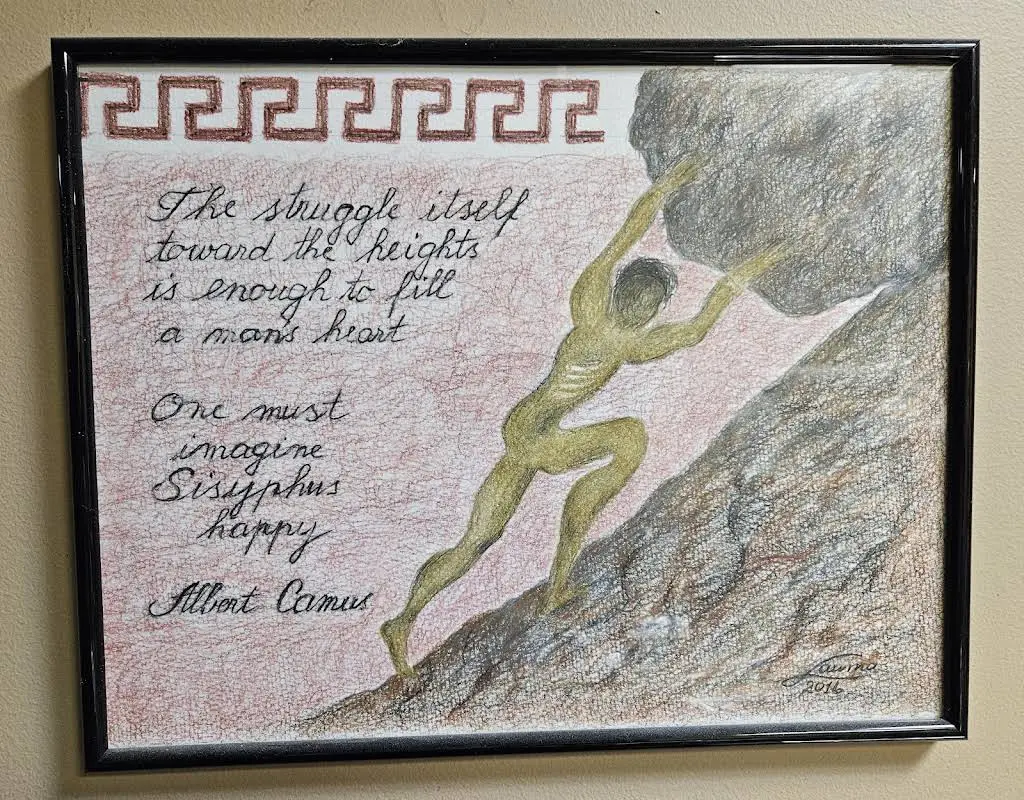 The struggle itself
toward the heights
is enough to fill
a man's heart
One must
imagine
Sisyphus
happy
Albert Camus
2016